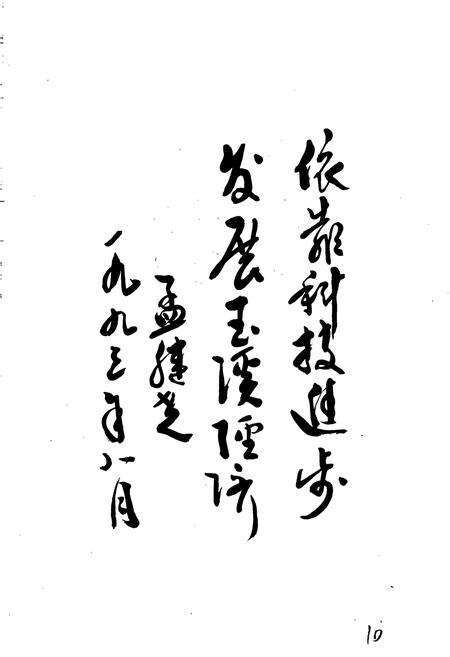 依靠科技进步
发展玉溪经济
孟继尧
一九九三年八月
10